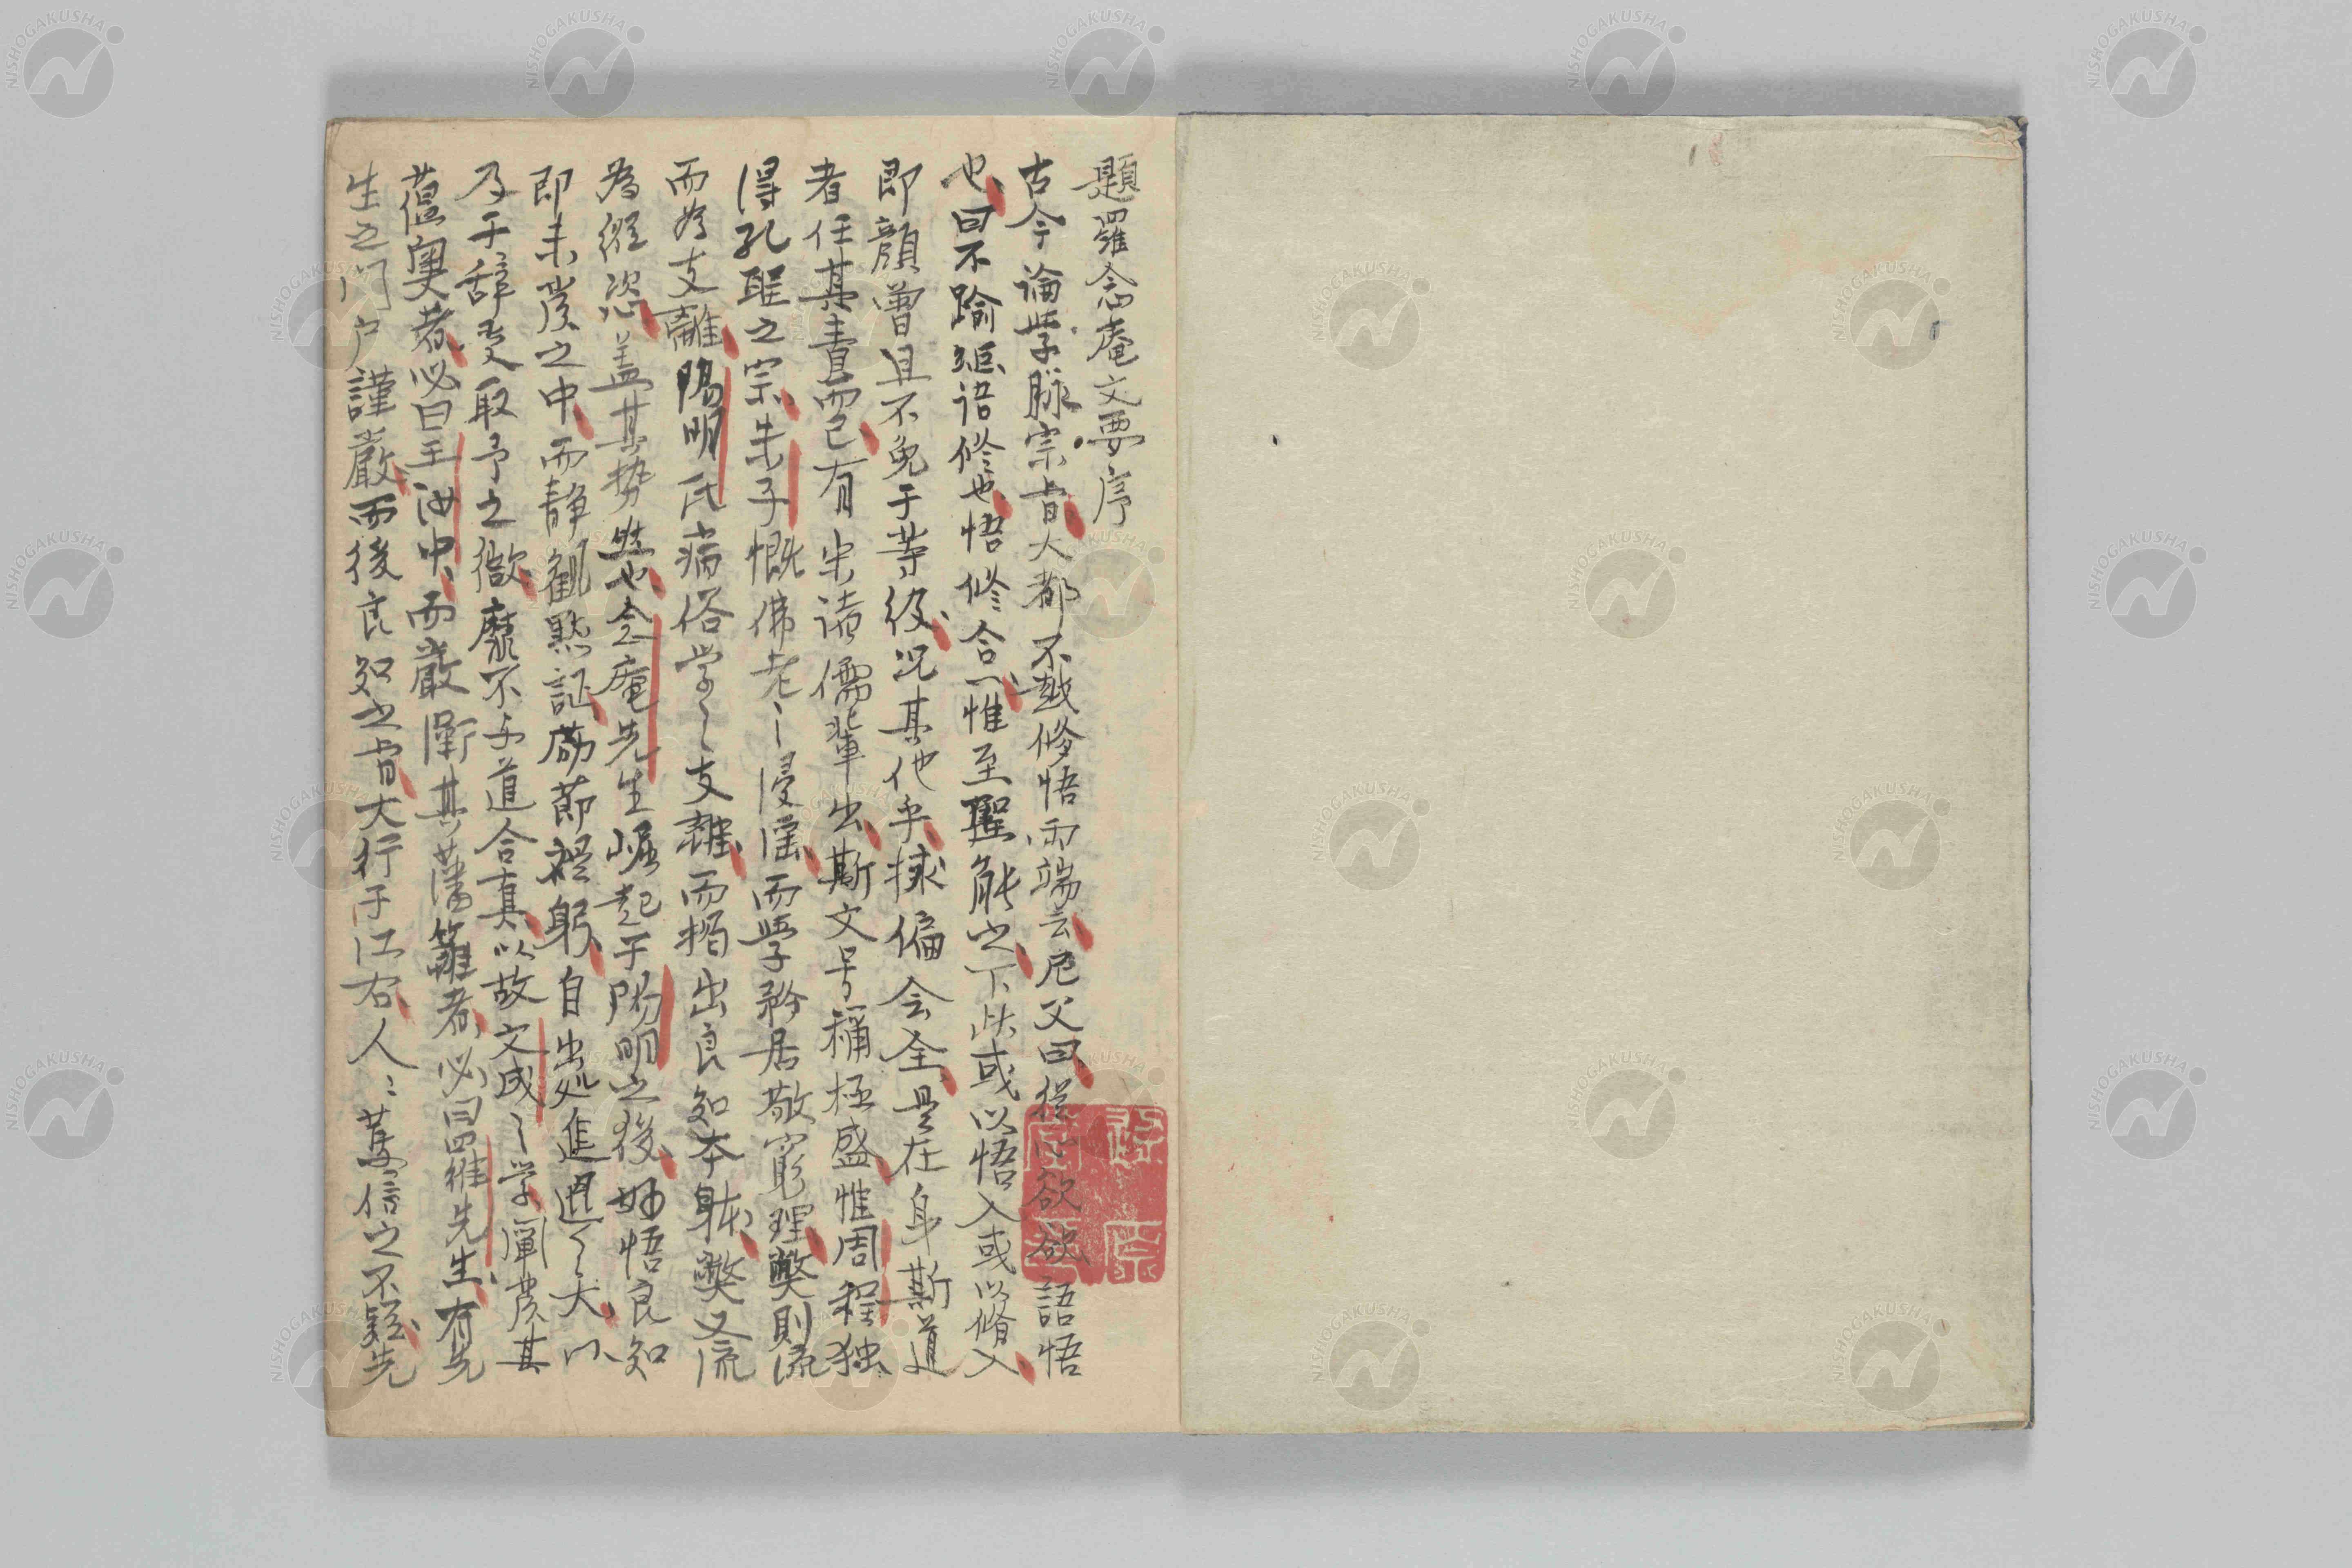 題羅念庵文要序
古今論学脉宗旨大都不越修悟両端云尼父曰従心欲欲語悟
也曰不踰矩語修也悟修合一惟至聖能之下此或以悟入或以脩入
即顔曽且不免于等级况其他乎捄偏会全是在身斯道
者任其責而已有宋諸儒輩出斯文号称極盛惟周程独
得孔聖之宗朱子慨佛老〻浸淫而学矜居敬窮理弊則流
而為支離陽明氏痛俗学〻支離而掲出良知本躰弊又流
為縦恣蓋其勢然也念庵先生崛起于陽明之後妙悟良知
即未発之中而静観黙証励節禔躬自出処進退〻大以
及于辞受取予之微靡不与道合真以故文成〻学闡発其
蘊奥者必曰王汝中而厳衛其藩籬者必曰羅先生有先
生之門户謹嚴而後良知之旨大行于江右人〻篤信之不疑先
NISHOGAKUSHA